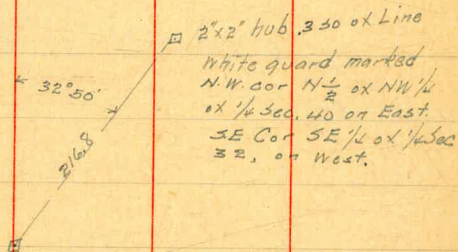 2"x2" hub .330 of Line
White guard marked
N.W. cor N½ of NW ¼
of ¼ Sec. 40 on East.
SE Cor SE ¼ of ¼ Sec
32, on West.
32°50'
216.8